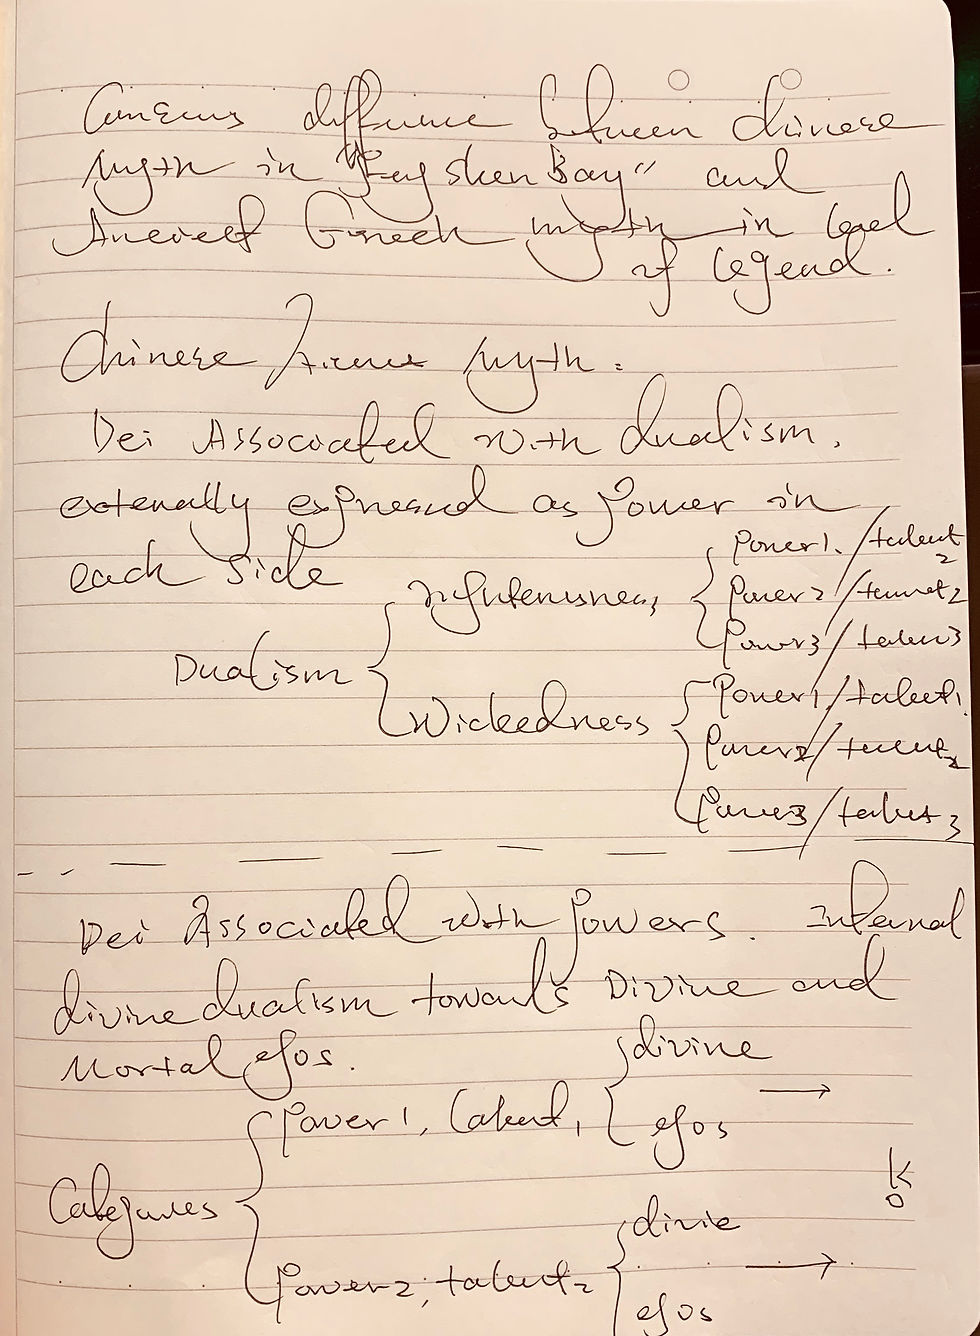 difference between Chinese
Myth in "Feng shen Bang" and
Ancient Greek myth in level
of legend.
Chinese myth.
Dei Associated with dualism.
externally expressed as power in
each side
righteousness
Power1 / talent
2
Power2 / talent2
Power3 / talent3
Dualism
Wickedness
Power1 / talent1.
Power2 / talent2
Power3 / talent3
Dei Associated with powers. Internal
divine dualism towards Divine and
Mortal egos.
divine
Power1, talent1
egos
Categories
divine
Power2, talent2
egos